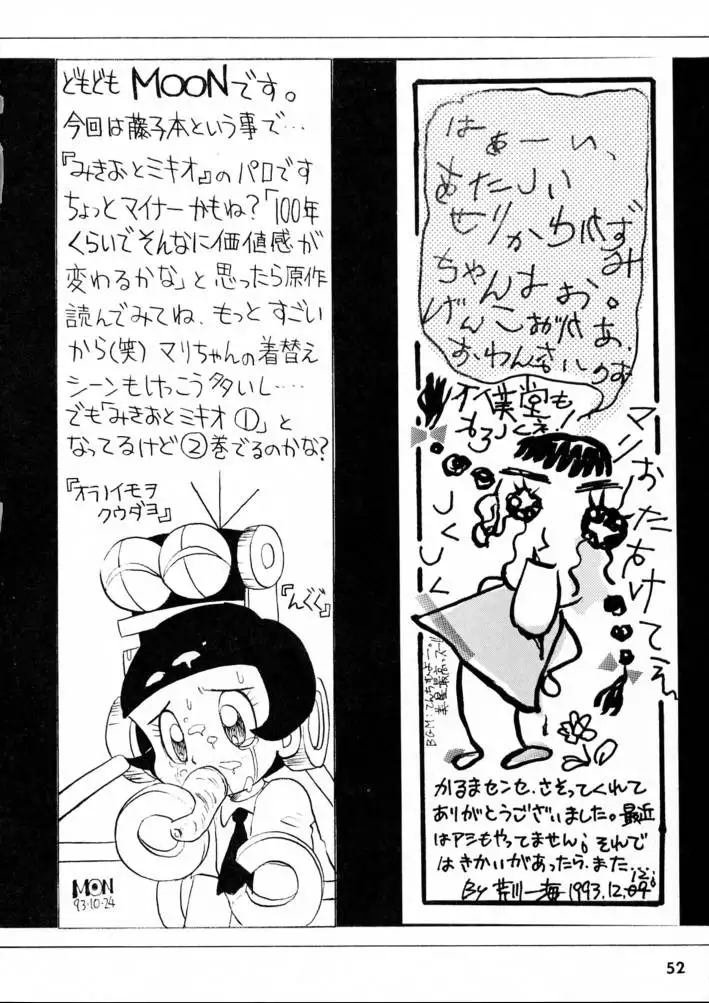 どもども MOONです。
今回は藤子本という事で…
『みきおとミキオ』のパロです
ちょっとマイナーかもね?「100年
くらいでそんなに価値感が
変わるかな」と思ったら原作
読んでみてね、もっとすごい
から(笑)マリちゃんの着替え
シーンもけっこう多いし……
でも「みきおとミキオ①」と
なってるけど②巻でるのかな?
『オラノイモヲ
クウダヨ』
『んぐぐ』
MOON
93・10・24
はぁーい、
あたしい
せりかわ
ちゃんよぉ。
マリおたすけてえ
しくしく
かるまセンセ、さそってくれて
ありがとうございました。最近
はアシもやってません;それで
はきかいがあったら、また。
By 芹川一海 1993.12.
52